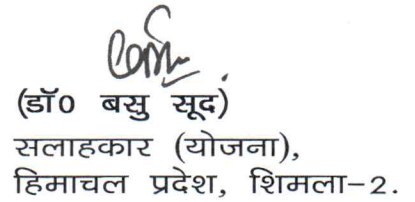 (डॉ0 बसु सूद)
सलाहकार (योजना),
हिमाचल प्रदेश, शिमला-2.